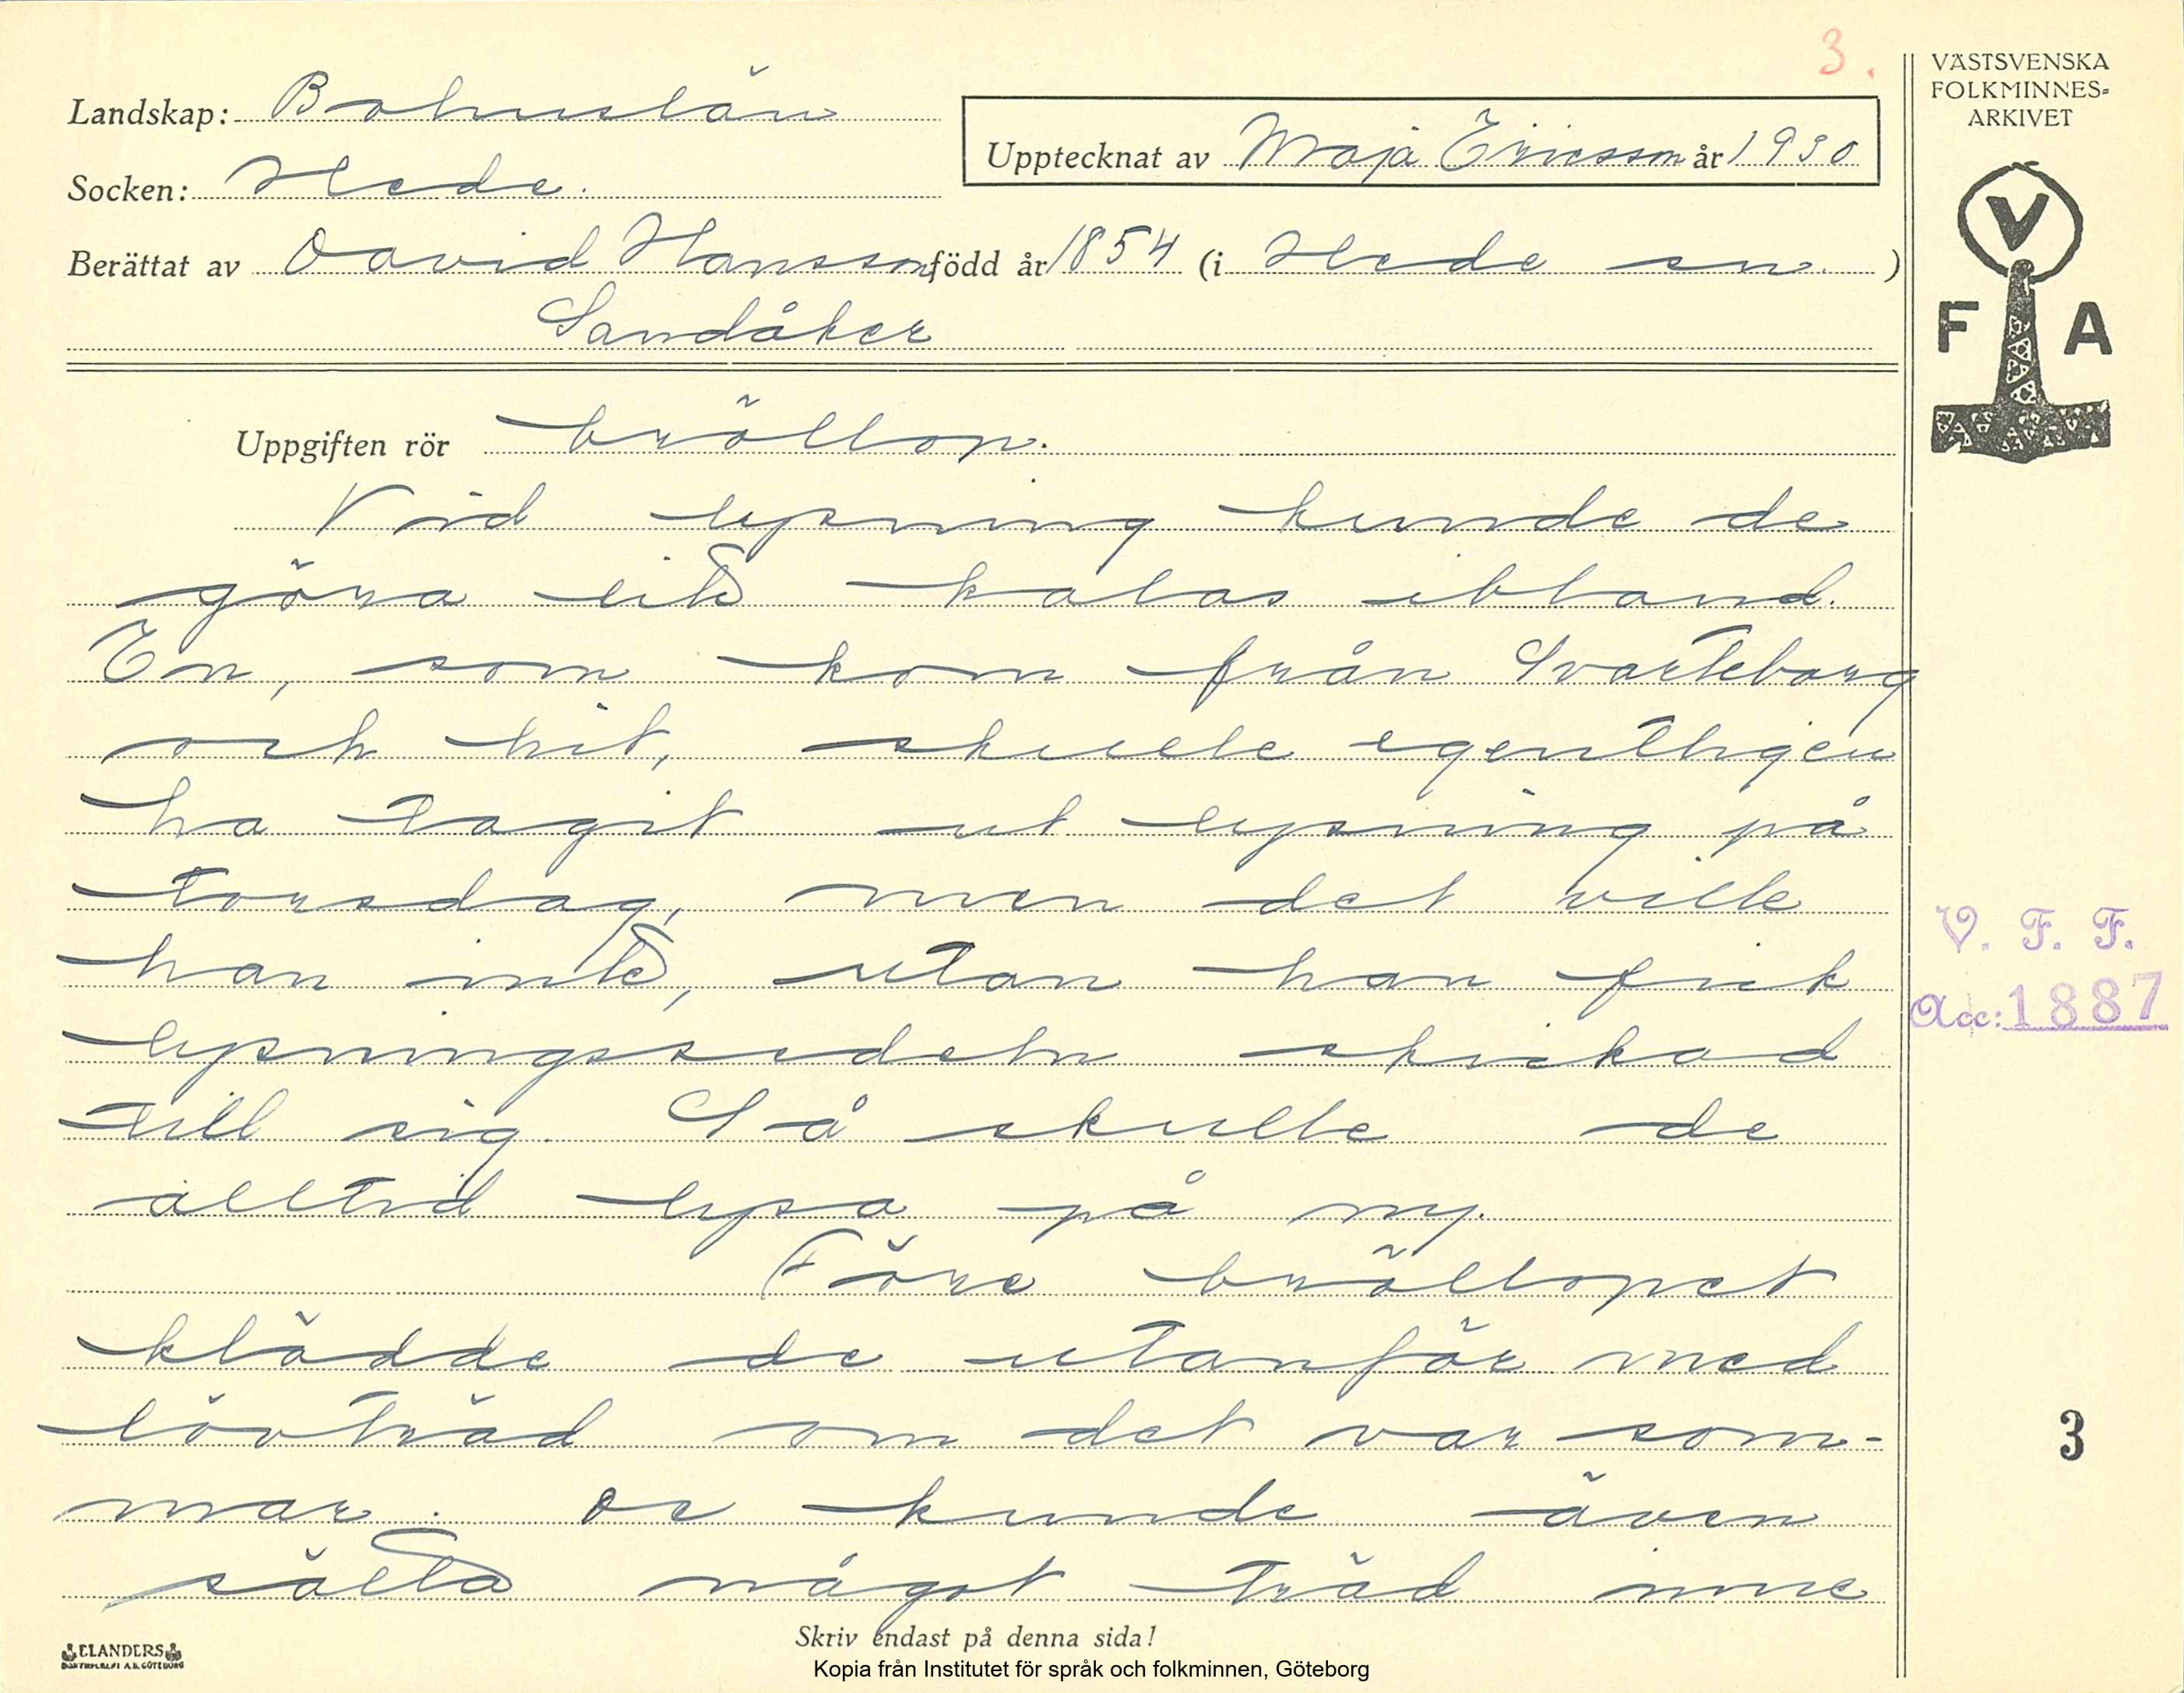 3.
VÄSTSVENSKA
FOLKMINNES-
ARKIVET
Landskap: Bohuslän
Upptecknat av Maja Ericsson år 1930
Socken: Hede.
Berättat av David Hansson född år 1854 (i Hede sn. )
Sandåker
V
F A
Uppgiften rör bröllop.
Vid lysning kunde de
göra litet kalas ibland.
En, som kom från Svarteborg
och hit, skulle egentligen
ha tagit ut lysning på
torsdag, men det ville
han inte, utan han fick
lysningssedeln skickad
till sig. Så skulle de
alltid lysa på ny.
Före bröllopet
klädde de utanför med
lövträd om det var som-
mar. De kunde även
sätta något träd inne
V. F. F.
Acc: 1887
3
Skriv endast på denna sida!
ELANDERS
BOKTRYCKERI A.B. GÖTEBORG
Kopia från Institutet för språk och folkminnen, Göteborg